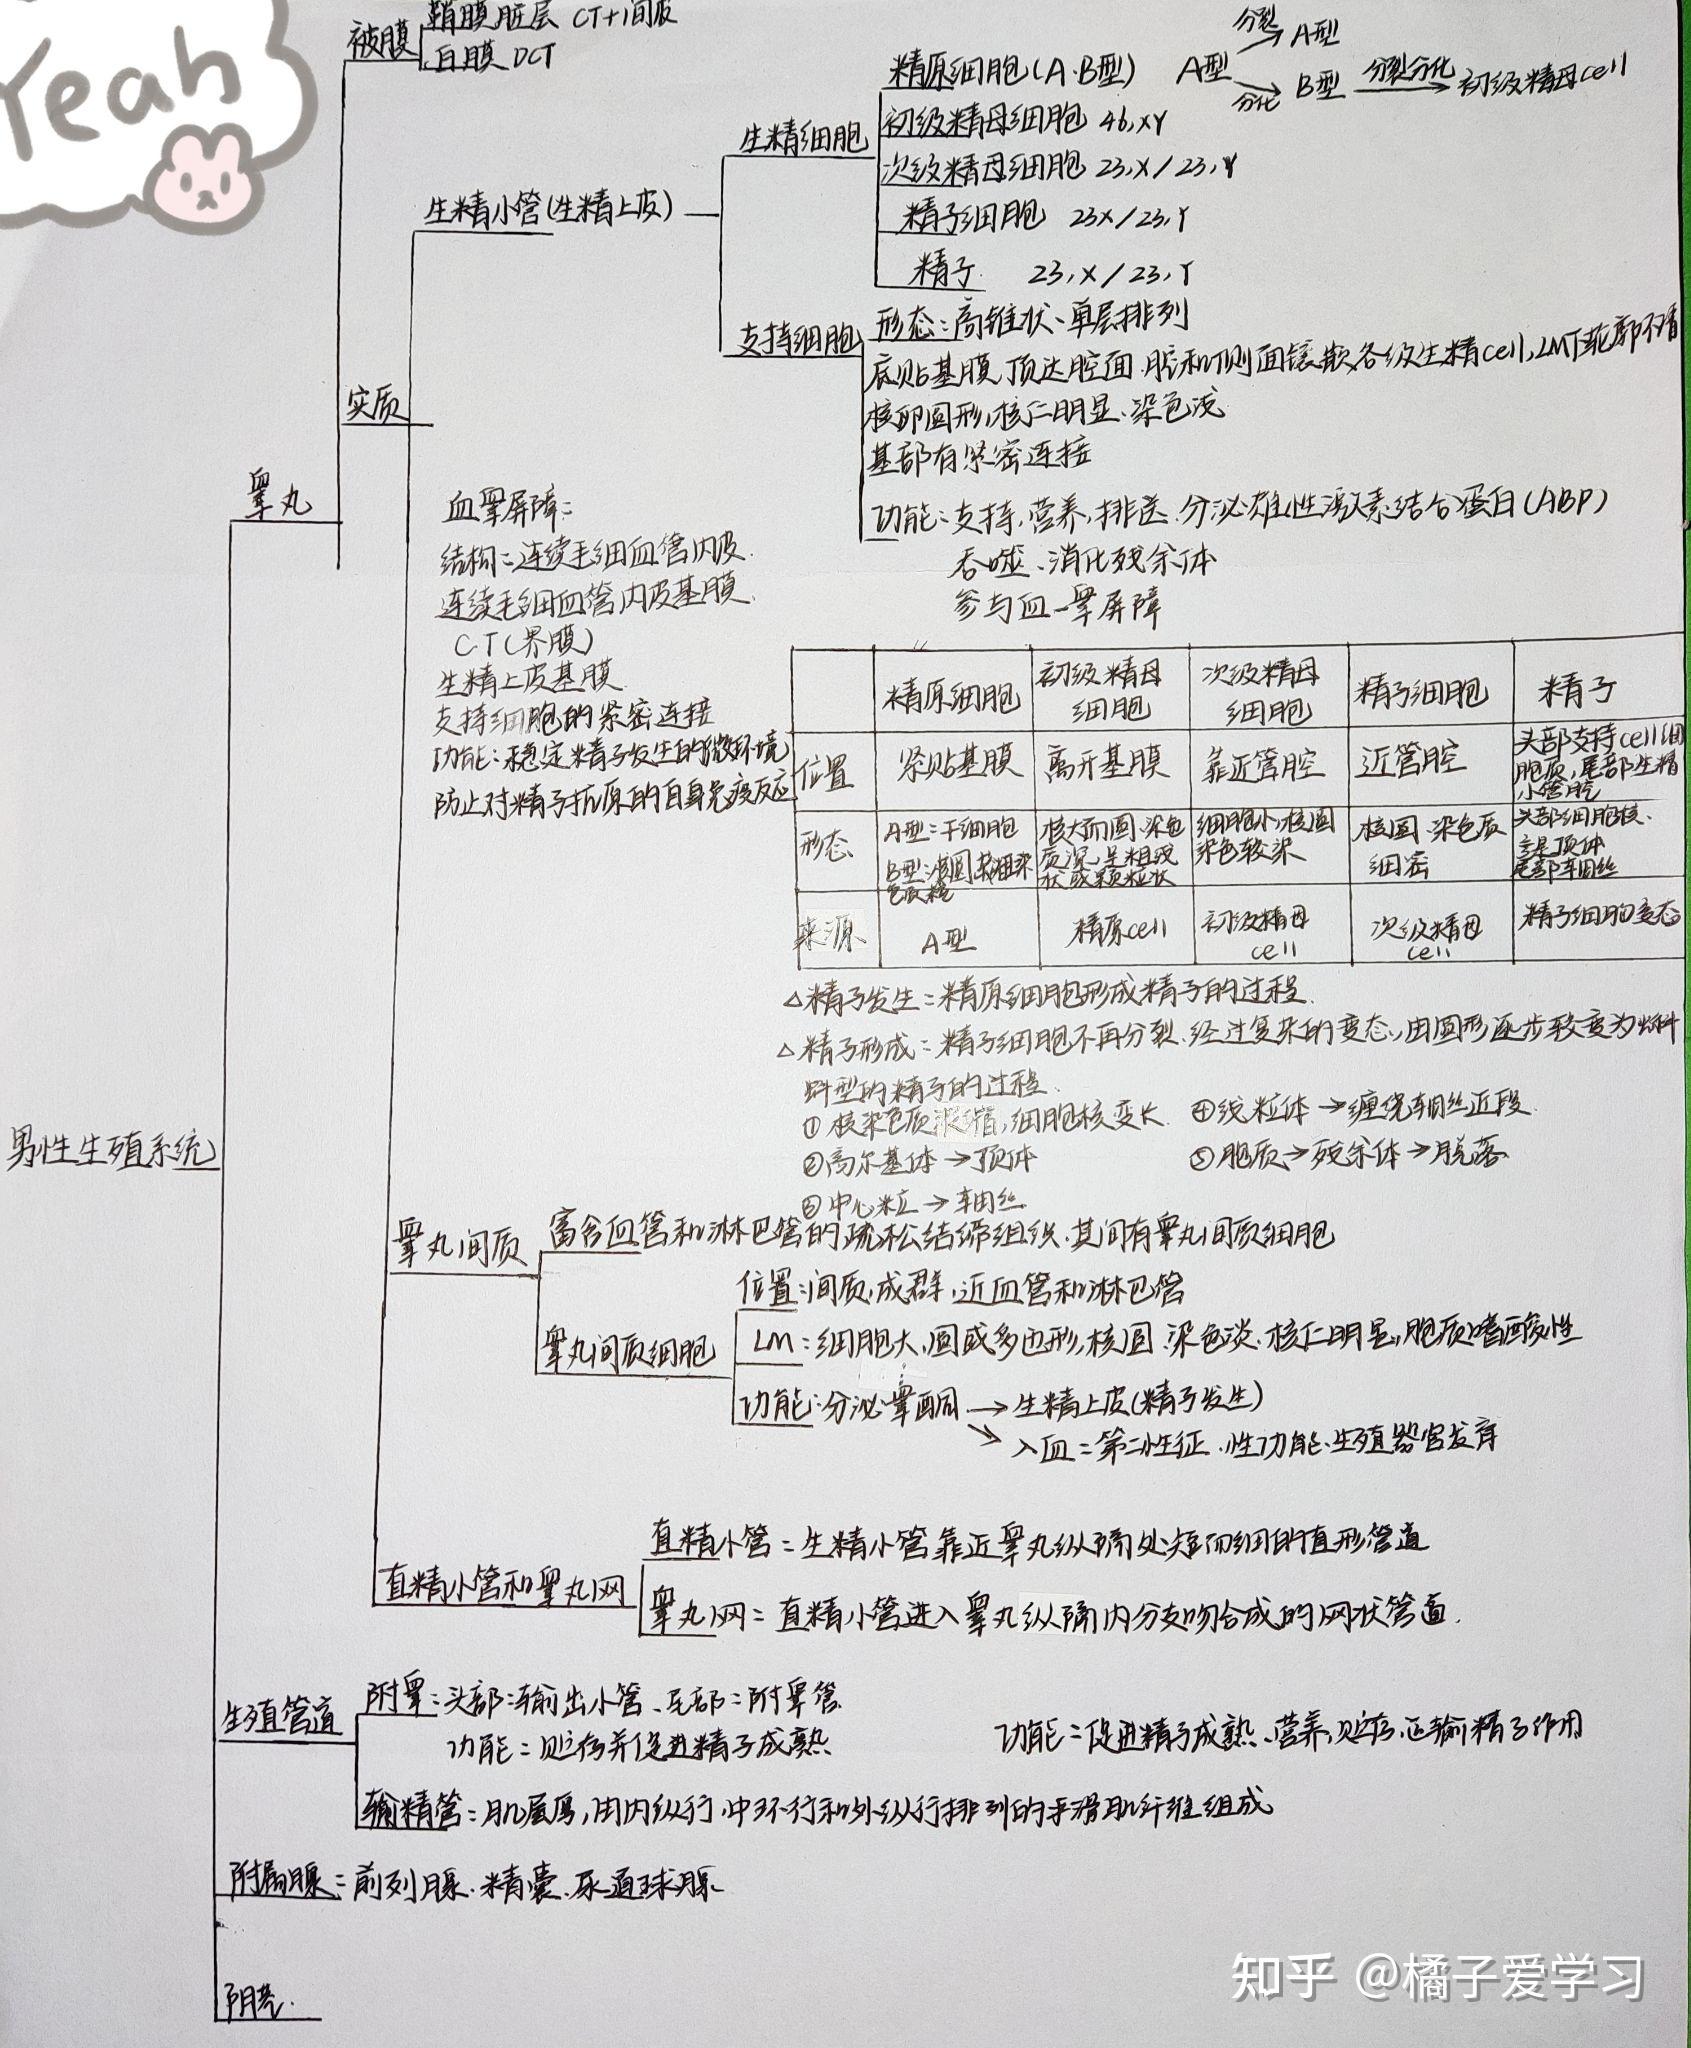 Yeah
被膜
鞘膜脏层 CT+间皮
白膜 DCT
精原细胞(A、B型) A型 分裂→A型
分化→B型 分裂分化→初级精母cell
生精细胞
初级精母细胞 46,XY
次级精母细胞 23,X/23,Y
生精小管(生精上皮)
精子细胞 23X/23,Y
精子 23,X/23,Y
支持细胞
形态:高锥状、单层排列
底贴基膜,顶达腔面,腔和侧面镶嵌各级生精cell,LM下轮廓不清
实质
核卵圆形,核仁明显、染色浅
基部有紧密连接
睾丸
功能:支持,营养,排送,分泌雄性激素结合蛋白(ABP)
吞噬、消化残余体
参与血-睾屏障
血睾屏障:
结构:连续毛细血管内皮.
连续毛细血管内皮基膜.
CT(界膜)
生精上皮基膜
支持细胞的紧密连接
功能:稳定精子发生的微环境
防止对精子抗原的自身免疫反应
精原细胞 初级精母细胞 次级精母细胞 精子细胞 精子
位置 紧贴基膜 离开基膜 靠近管腔 近管腔 头部支持cell细胞质,尾部生精小管腔
形态 A型:干细胞 B型: 核大而圆、染色质深,呈粗线状或颗粒状 细胞小,核圆染色较深 核圆、染色质细密 头部细胞核、顶体 尾部轴丝
来源 A型 精原cell 初级精母cell 次级精母cell 精子细胞变态
△精子发生:精原细胞形成精子的过程.
△精子形成:精子细胞不再分裂,经过复杂的变态,由圆形逐步转变为蝌
蚪型的精子的过程.
①核染色质浓缩,细胞核变长 ④线粒体→缠绕轴丝近段.
②高尔基体→顶体 ⑤胞质→残余体→脱落
③中心粒→轴丝
男性生殖系统
睾丸间质
富含血管和淋巴管的疏松结缔组织.其间有睾丸间质细胞
睾丸间质细胞
位置:间质,成群,近血管和淋巴管
LM:细胞大,圆或多边形,核圆、染色淡、核仁明显,胞质嗜酸性
功能:分泌睾酮→生精上皮(精子发生)
→入血:第二性征、性功能、生殖器官发育
直精小管和睾丸网
直精小管:生精小管靠近睾丸纵隔处短而细的直形管道
睾丸网:直精小管进入睾丸纵隔内分支吻合成的网状管道.
生殖管道
附睾:头部:输出小管、尾部:附睾管
功能:贮存并促进精子成熟
功能:促进精子成熟、营养,贮存,运输精子作用
输精管:肌层厚,由内纵行,中环行和外纵行排列的平滑肌纤维组成
附属腺:前列腺、精囊、尿道球腺
阴茎.
知乎 @橘子爱学习